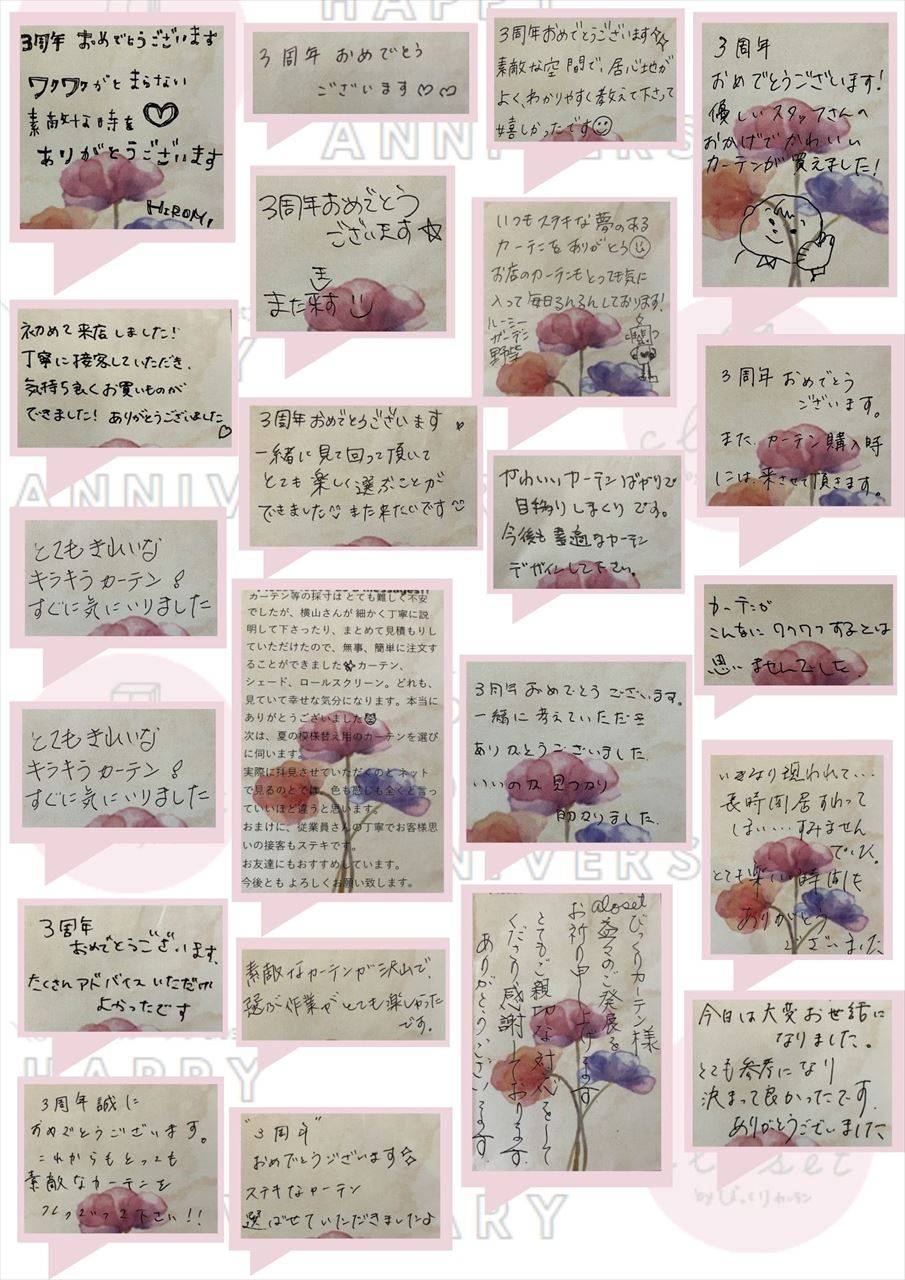 HAPPY
ANNIVERS
3周年 おめでとうございます
ワクワクがとまらない
素敵な時を♡
ありがとうございます
HIROMI
3周年 おめでとう
ございます♡♡
3周年おめでとうございます☆☆
素敵な空間で、居心地が
よく、わかりやすく教えて下さって
嬉しかったです☺
3周年
おめでとうございます!
優しいスタッフさんの
おかげでかわいい
カーテンが買えました!
3周年おめでとう
ございます☆
また来ます
いつもステキな夢のある
カーテンをありがとう☺
お店のカーテンもとっても気に
入って毎日るんるんしております!
ルーミー
ガーデン
野柴
初めて来店しました!
丁寧に接客していただき、
気持ち良くお買いものが
できました! ありがとうございました♡
3周年おめでとうございます
一緒に見て回って頂いて
とても楽しく選ぶことが
できました☺また来たいです☺
3周年 おめでとう
ございます。
また、カーテン購入時
には、来させて頂きます。
かわいいカーテンばかりで
目移りしまくりです。
今後も素適なカーテン
デザインして下さい。
ANNIV
とてもきれいな
キラキラカーテン!
すぐに気にいりました
カーテンが
こんなにワクワクするとは
思いませんでした
カーテン等の採寸は とても難しく不安
でしたが、横山さんが 細かく丁寧に説
明して下さったり、まとめて見積もりし
ていただけたので、無事、簡単に注文す
ることができました カーテン、
シェード、ロールスクリーン。どれも、
見ていて幸せな気分になります。本当に
ありがとうございました
次は、夏の模様替え用のカーテンを選び
に伺います。
実際に拝見させていただくのと ネット
で見るのとでは、色も感じも全くと言っ
ていいほど違うと思います。
おまけに、従業員さんの丁寧でお客様思
いの接客もステキです。
お友達にもおすすめしています。
今後とも よろしくお願い致します。
3周年おめでとうございます。
一緒に考えていただき
ありがとうございました。
いいのが見つかり
助かりました。
とてもきれいな
キラキラカーテン!
すぐに気にいりました
いきなり伺われて…
長時間居すわって
しまい…すみません
でした。
とても楽しい時間を
ありがとう
ございました
3周年
おめでとうございます。
たくさんアドバイスいただけ
よかったです
素敵なカーテンが沢山で、
選ぶ作業がとても楽しかった
です。
びっくりカーテン様
closet
益々のご発展を
お祈り申し上げます
とてもご親切な対応をして
くださり感謝しております。
ありがとうございます。
今日は大変お世話に
なりました。
とても参考になり
決まって良かったです。
ありがとうございました
HAPPY
3周年誠に
おめでとうございます。
これからもとっても
素敵なカーテンを
つくって下さい!!
"3周年"
おめでとうございます☆
ステキなカーテン
選ばせていただきましたよ
closet
byびっくりカーテン